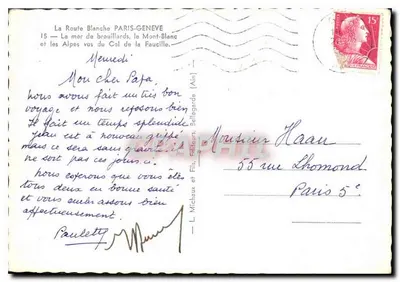 La Route Blanche PARIS-GENEVE
15 - La mer de brouillards, le Mont-Blanc
et les Alpes vus du Col de la Faucille.
Mercredi
Mon cher Papa.
nous avons fait un très bon
voyage et nous reposons bien.
Il fait un temps splendide
Jean est à nouveau grippé
mais ce sera sans
ne sort pas ces jours ci.
nous espérons que vous êtes
tous deux en bonne santé
et vous embrassons bien
affectueusement.
Paulette
L. Michaux et Fils, Editeurs, Bellegarde (Ain)
15F
Monsieur Haau
55 rue Lhomond
Paris 5e